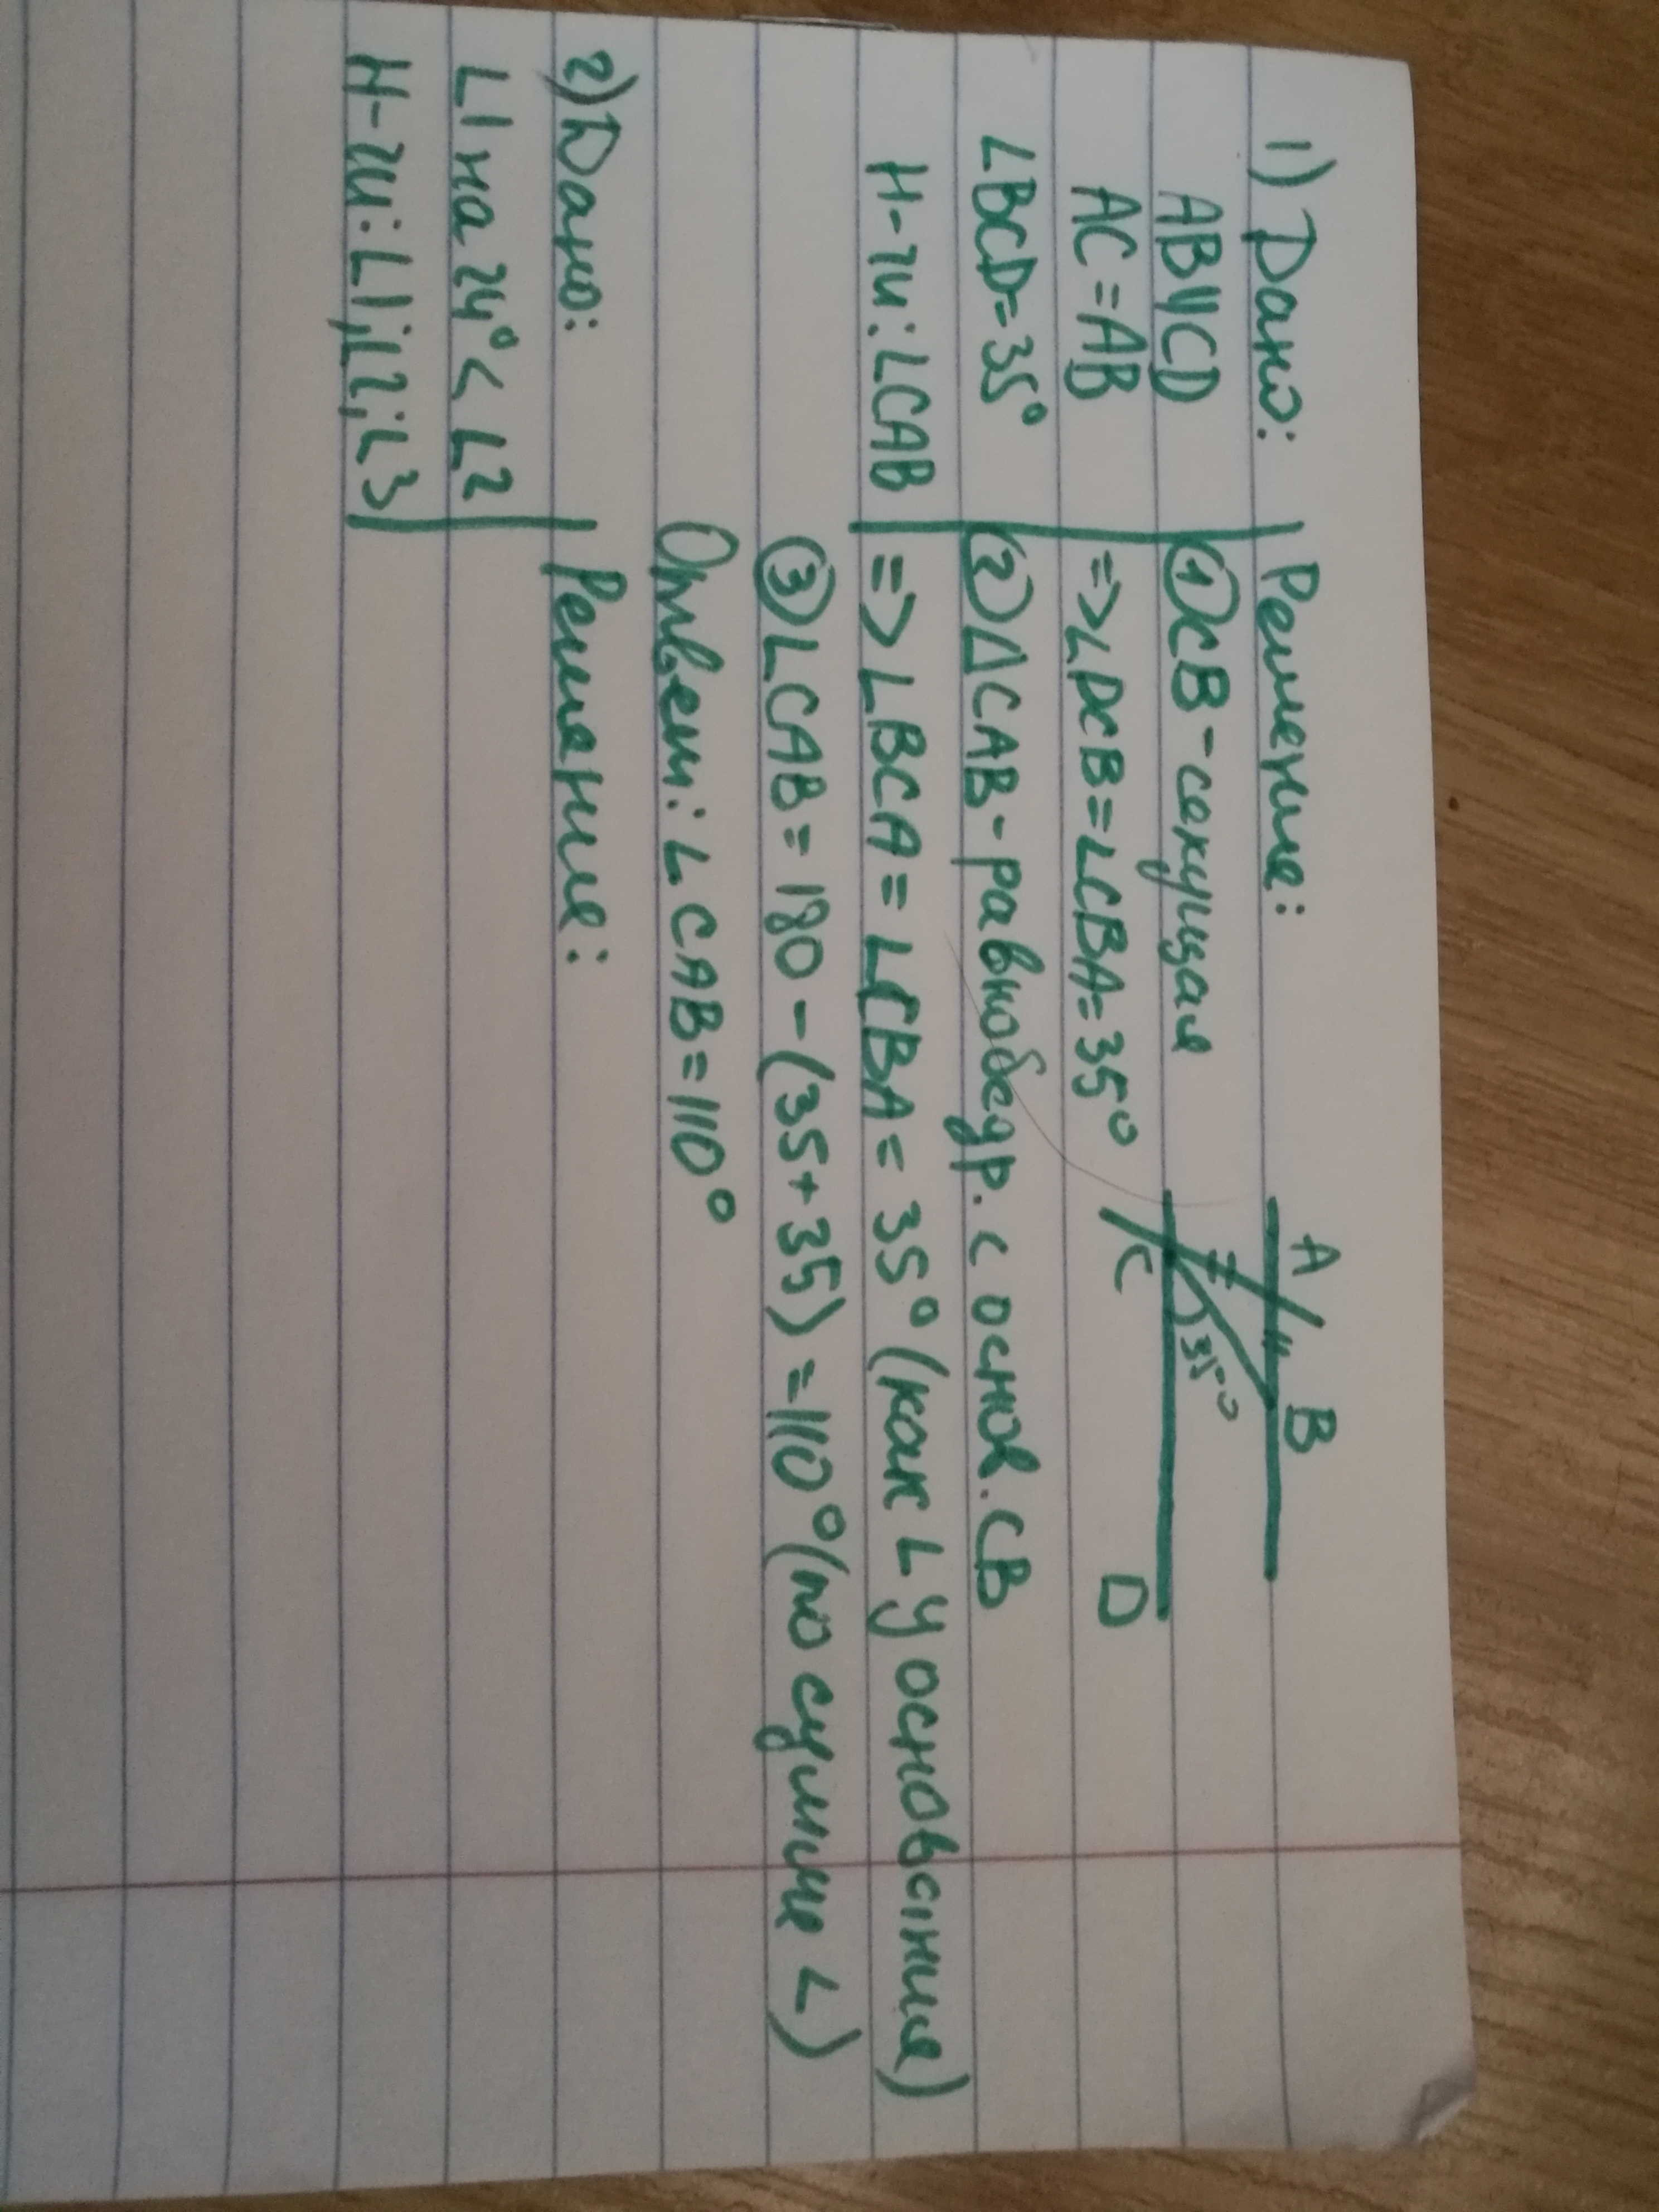 1) Дано:
AB||CD
AC=AB
∠BCD=35°
Н-ти: ∠CAB
Решение:
① CB-секущая
=> ∠DCB=∠CBA=35°
② ΔCAB-равнобедр. с основ. CB
=> ∠BCA=∠CBA=35° (как ∠ у основания)
③ ∠CAB=180-(35+35)=110° (по сумме ∠)
Ответ: ∠CAB=110°
A B
35°
C
D
2) Дано:
∠1 на 24° < ∠2
Н-ти: ∠1; ∠2; ∠3
Решение: